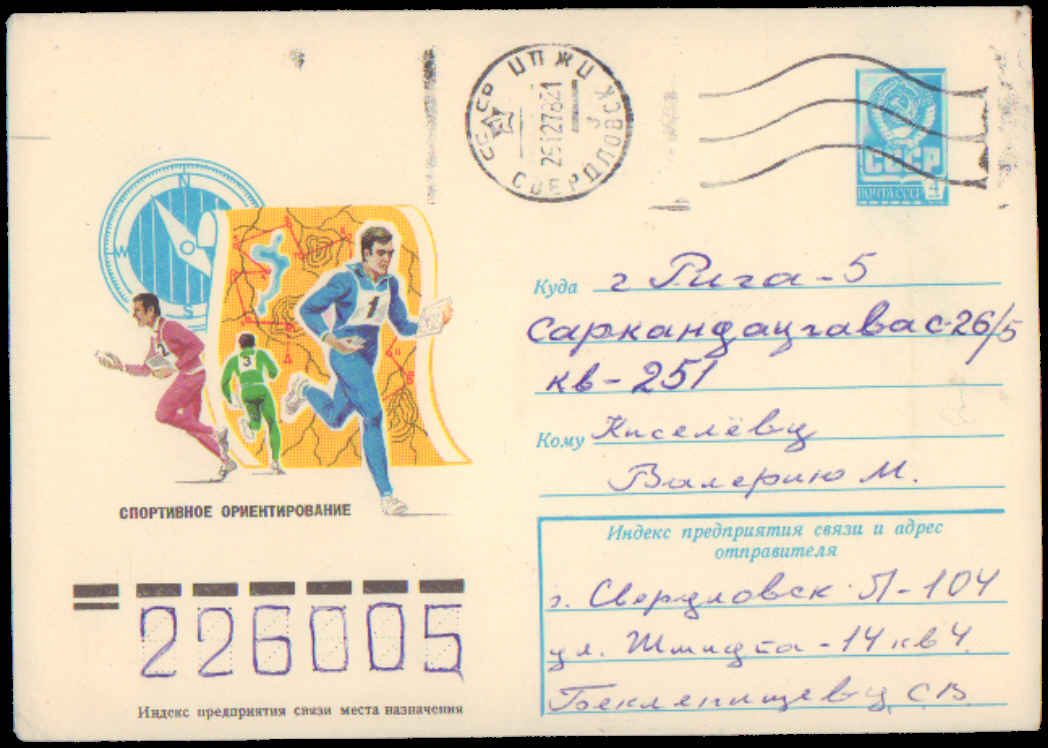 СССР ЦПЖЦ
25127821
СВЕРДЛОВСК
СССР
ПОЧТА СССР
4
N
W
S
1
2
3
Куда г Рига-5
Саркандаугавас-26/5
кв-251
Кому Киселёву
Валерию М.
СПОРТИВНОЕ ОРИЕНТИРОВАНИЕ
Индекс предприятия связи и адрес
отправителя
г. Свердловск П-104
ул. Шмидта-14 кв 4.
Беклепищеву С.В.
226005
Индекс предприятия связи места назначения